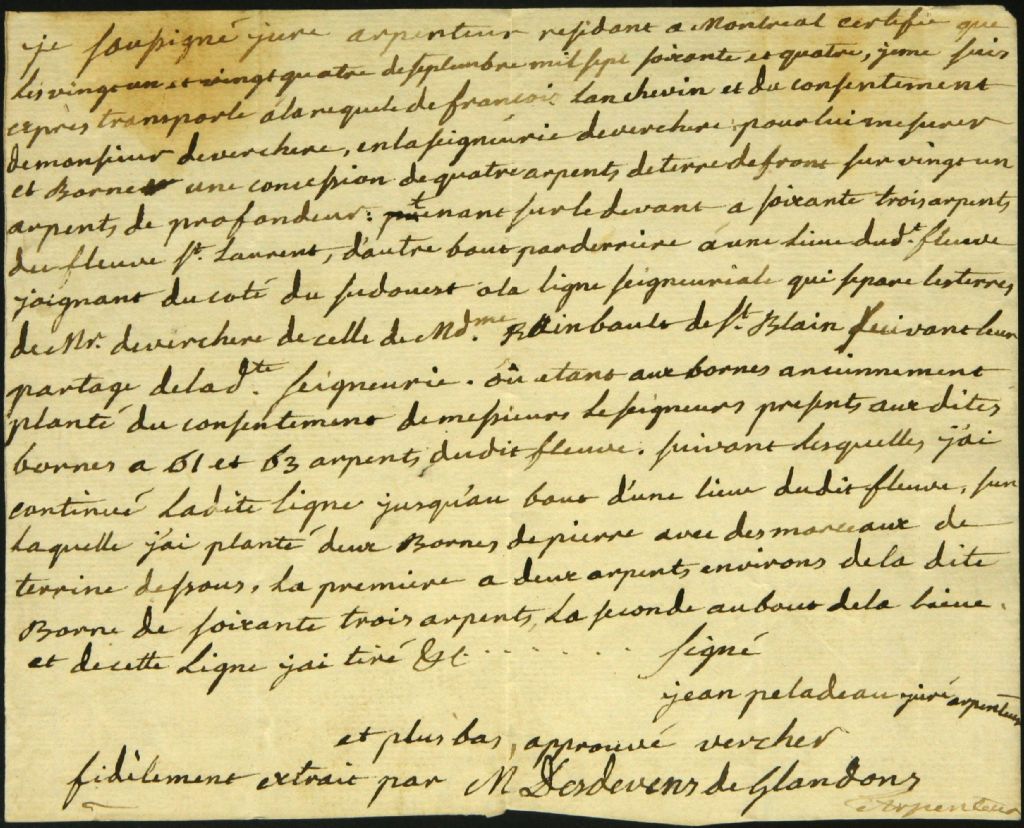 je soussigné juré arpenteur residant a Montreal certifie que
les vingt un et vingt quatre de septembre mil sept soixante et quatre, je me suis
exprès transporté a la requete de francois Lanchevin et du consentement
de monsieur de verchere, en la seigneurie de verchere pour lui mesurer
et Borner une concession de quatre arpents de terre de front sur vingt un
arpents de profondeur: tenant sur le devant a soixante trois arpents
du fleuve St. Laurent, d'autre bout par derriere a une Lieue dud.t fleuve
joignant du coté du sudouest a la ligne seigneuriale qui separe les terres
de Mr. de verchere de celle de Md.me Rainbault de St Blain suivant leur
partage de lad.te seigneurie. où etant aux bornes anciennement
planté du consentement de messieurs Le seigneurs presents aux dites
bornes a 61 et 63 arpents dudit fleuve. suivant lesquelles j'ai
continué Ladite Ligne jusqu'au bout d'une lieue dudit fleuve, sur
Laquelle j'ai planté deux Bornes de pierre avec des morceaux de
terrine dessous. La premiere a deux arpents environs de la dite
Borne de soixante trois arpents, La seconde au bout de la Lieue.
et de cette Ligne j'ai tiré &c. . . . . . . . signé
jean peladeau juré arpenteur
et plus bas, approuvé vercher
fidèlement extrait par M Desdevens de Glandons
Arpenteur